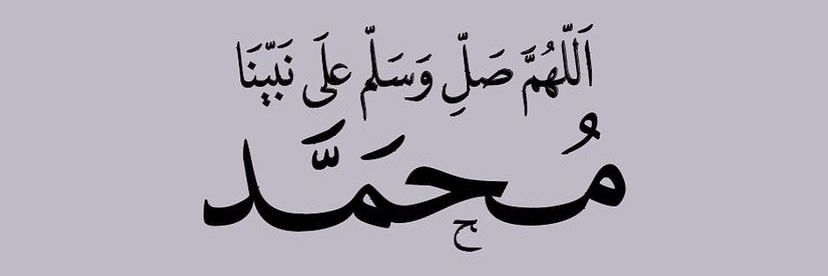 اَللّهُمَّ صَلِّ وَسَلّم علَى نَبيّنَا
مُحمَّد